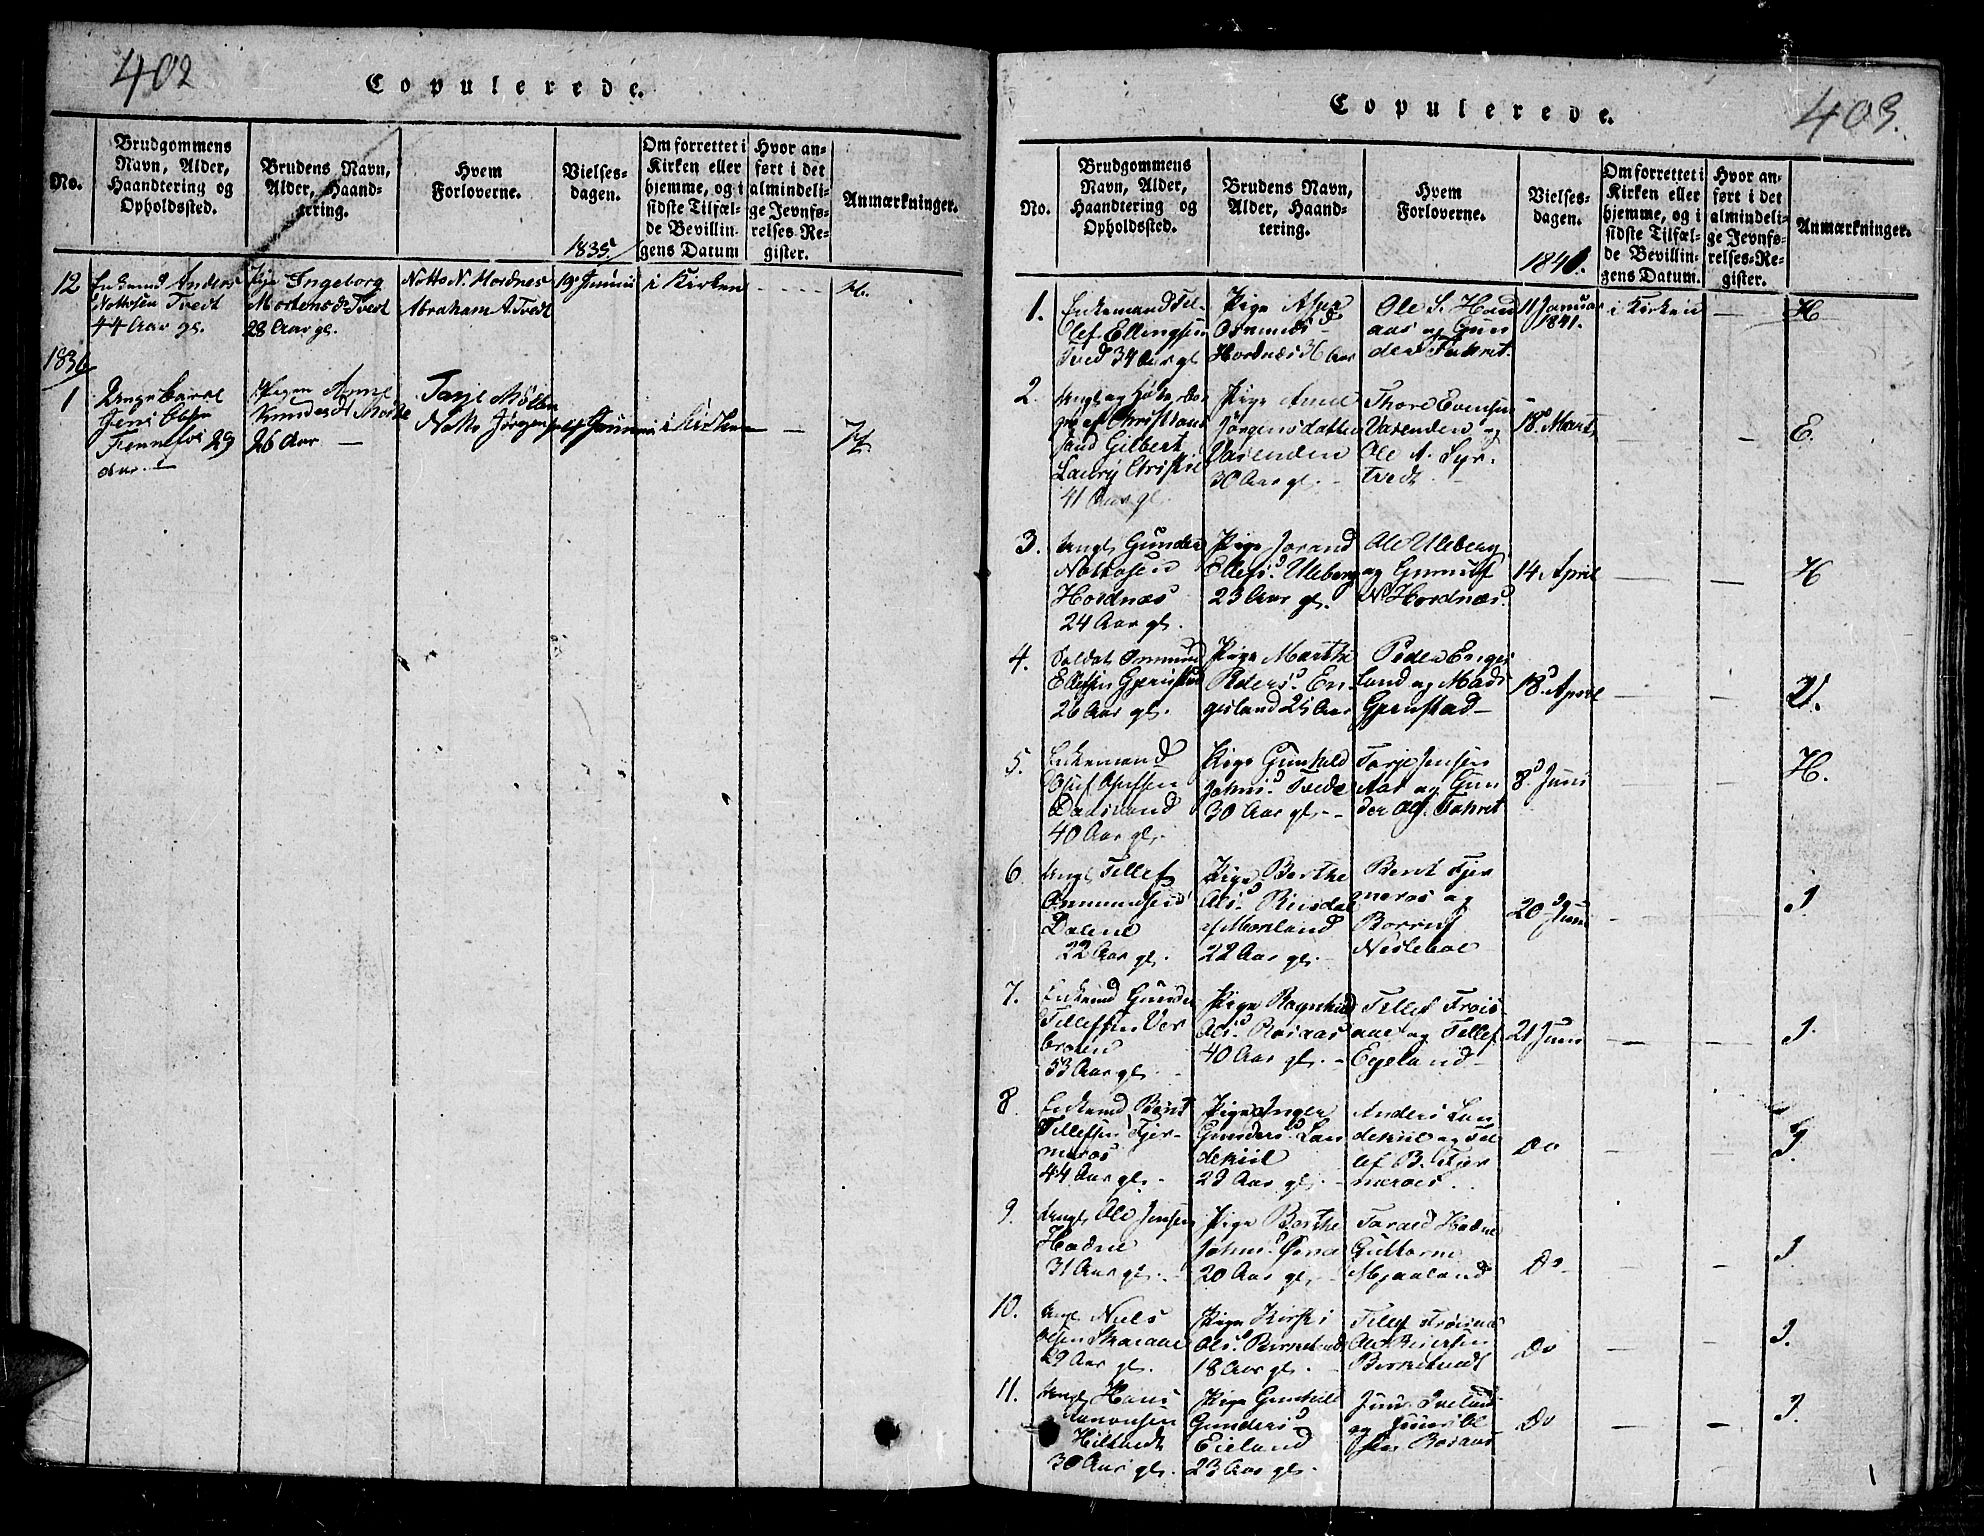 402
Copulerede.
No.
Brudgommens
Navn, Alder,
Haandtering og
Opholdssted.
Brudens Navn,
Alder, Haand-
tering.
Hvem
Forloverne.
Vielses-
dagen.
1835
Om forrettet i
Kirken eller
hjemme, og i
sidste Tilfæl-
de Bevillin-
gens Datum
Hvor an-
ført i det
almindeli-
ge Jevnfø-
relses-Re-
gister.
Anmærkninger.
12
Enkemd Anders
Nottosen Tvedt
44 Aar gl.
Pige Ingeborg
Mortensd. Tvedt
28 Aar gl.
Notto N. Hordnes
Abraham A. Tvedt
19 Junii
i Kirken
H.
1836
1
Ungekarl
Jens
29
Aar.
Pigen Anne
Knudsd
26 Aar
Tarje
Notto Jørgensen
Junii
i Kirken
H.
403.
Copulerede.
No.
Brudgommens
Navn, Alder,
Haandtering og
Opholdssted.
Brudens Navn,
Alder, Haand-
tering.
Hvem
Forloverne.
Vielses-
dagen.
1841.
Om forrettet i
Kirken eller
hjemme, og i
sidste Tilfæl-
de Bevillin-
gens Datum.
Hvor an-
ført i det
almindeli-
ge Jevnfø-
relses-Re-
gister.
Anmærkninger.
1.
Enkemand Tel-
lef Ellingsen
Tved 34 Aar gl
Pige Aase
Osmunds d
Hordnæs 36 Aar
Ole S. Haa
aas og Gun
der Takset.
11 Januar
1841.
i Kirken
H
2
Christians
sand Gilbert
Laury Christie
41 Aar gl.
Pige Anne
Jörgensdatter
Vasenden
30 Aar gl.
Thore Evensen
Vasenden og
Ole A. Syr-
tvedt.
18 Marts
E.
3.
Ungk Gunder
Nottosen
Hordnæs
24 Aar gl.
Pige Jorand
Ellefsd. Uleberg
23 Aar gl.
Ole Uleberg
og Gunulf
N Hordnæs.
14 April
H
4.
Soldat Osmund
Ellefsen Gjerustad
26 Aar gl.
Pige Marthe
Pedersd. En-
gesland 25 Aar
Peder Enges
land og Mads
Gjerustad
18 April
V.
5.
Enkemand
Oluf Olufsen
40 Aar gl.
Pige Gunhild
Johnsd. Tvede
30 Aar gl.
Tarje Jensen
Aas og Gun
der Takset
8 Juni
H.
6
Ungk Tellef
Osmundsen
Dalene
22 Aar gl.
Pige Berthe
Olsd. Riisdal
af Moseland
22 Aar gl.
Bent Fjer
meros og
Nesleboe
20 Juni
I
7.
Enkemd Gunder
Tellefsen Ver
53 Aar gl.
Pige Ragnhild
Olsd. Rosaas
40 Aar gl.
Tellef Frøis
aae og Tellef
Egeland
21 Juni
I.
8
Enkemd Bent
Tellefsen Fjer-
meros
44 Aar gl.
Pige Inger
Gundersd. Lan
dekiil
29 Aar gl.
Anders Lan
dekiil og Tel
lef B. Fjer
meroes.
Do
I.
9.
Ungk Ole Jensen
Hodne
31 Aar gl.
Pige Berthe
Johnsd.
20 Aar gl.
Tarald Hodne
Guttorm
Mjaaland
Do
I.
10.
Ungk Niels
Olsen Skaiaae
29 Aar gl.
Pige Kirsti
Olsd. Birkelund
18 Aar gl.
Tellef Frøisaae
Birkelund
Do
I.
11.
Ungk Hans
Aanonsen
Hiltvedt
30 Aar gl.
Pige Gunhild
Gundersd
Eieland
23 Aar gl.
Juns Iveland
og Juns Ol
sen Rosaas
Do
I.